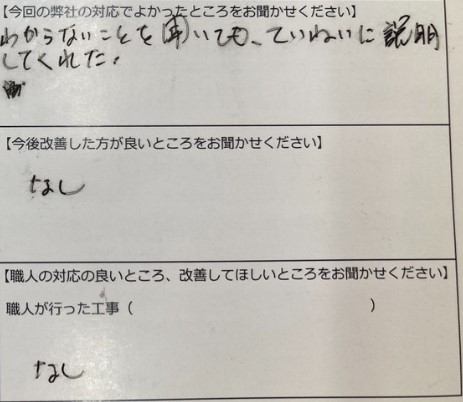 【今回の弊社の対応でよかったところをお聞かせください】
わからないことを聞いても、ていねいに説明
してくれた。
【今後改善した方が良いところをお聞かせください】
なし
【職人の対応の良いところ、改善してほしいところをお聞かせください】
職人が行った工事（　　　　　　　　　　　　　　　）
なし